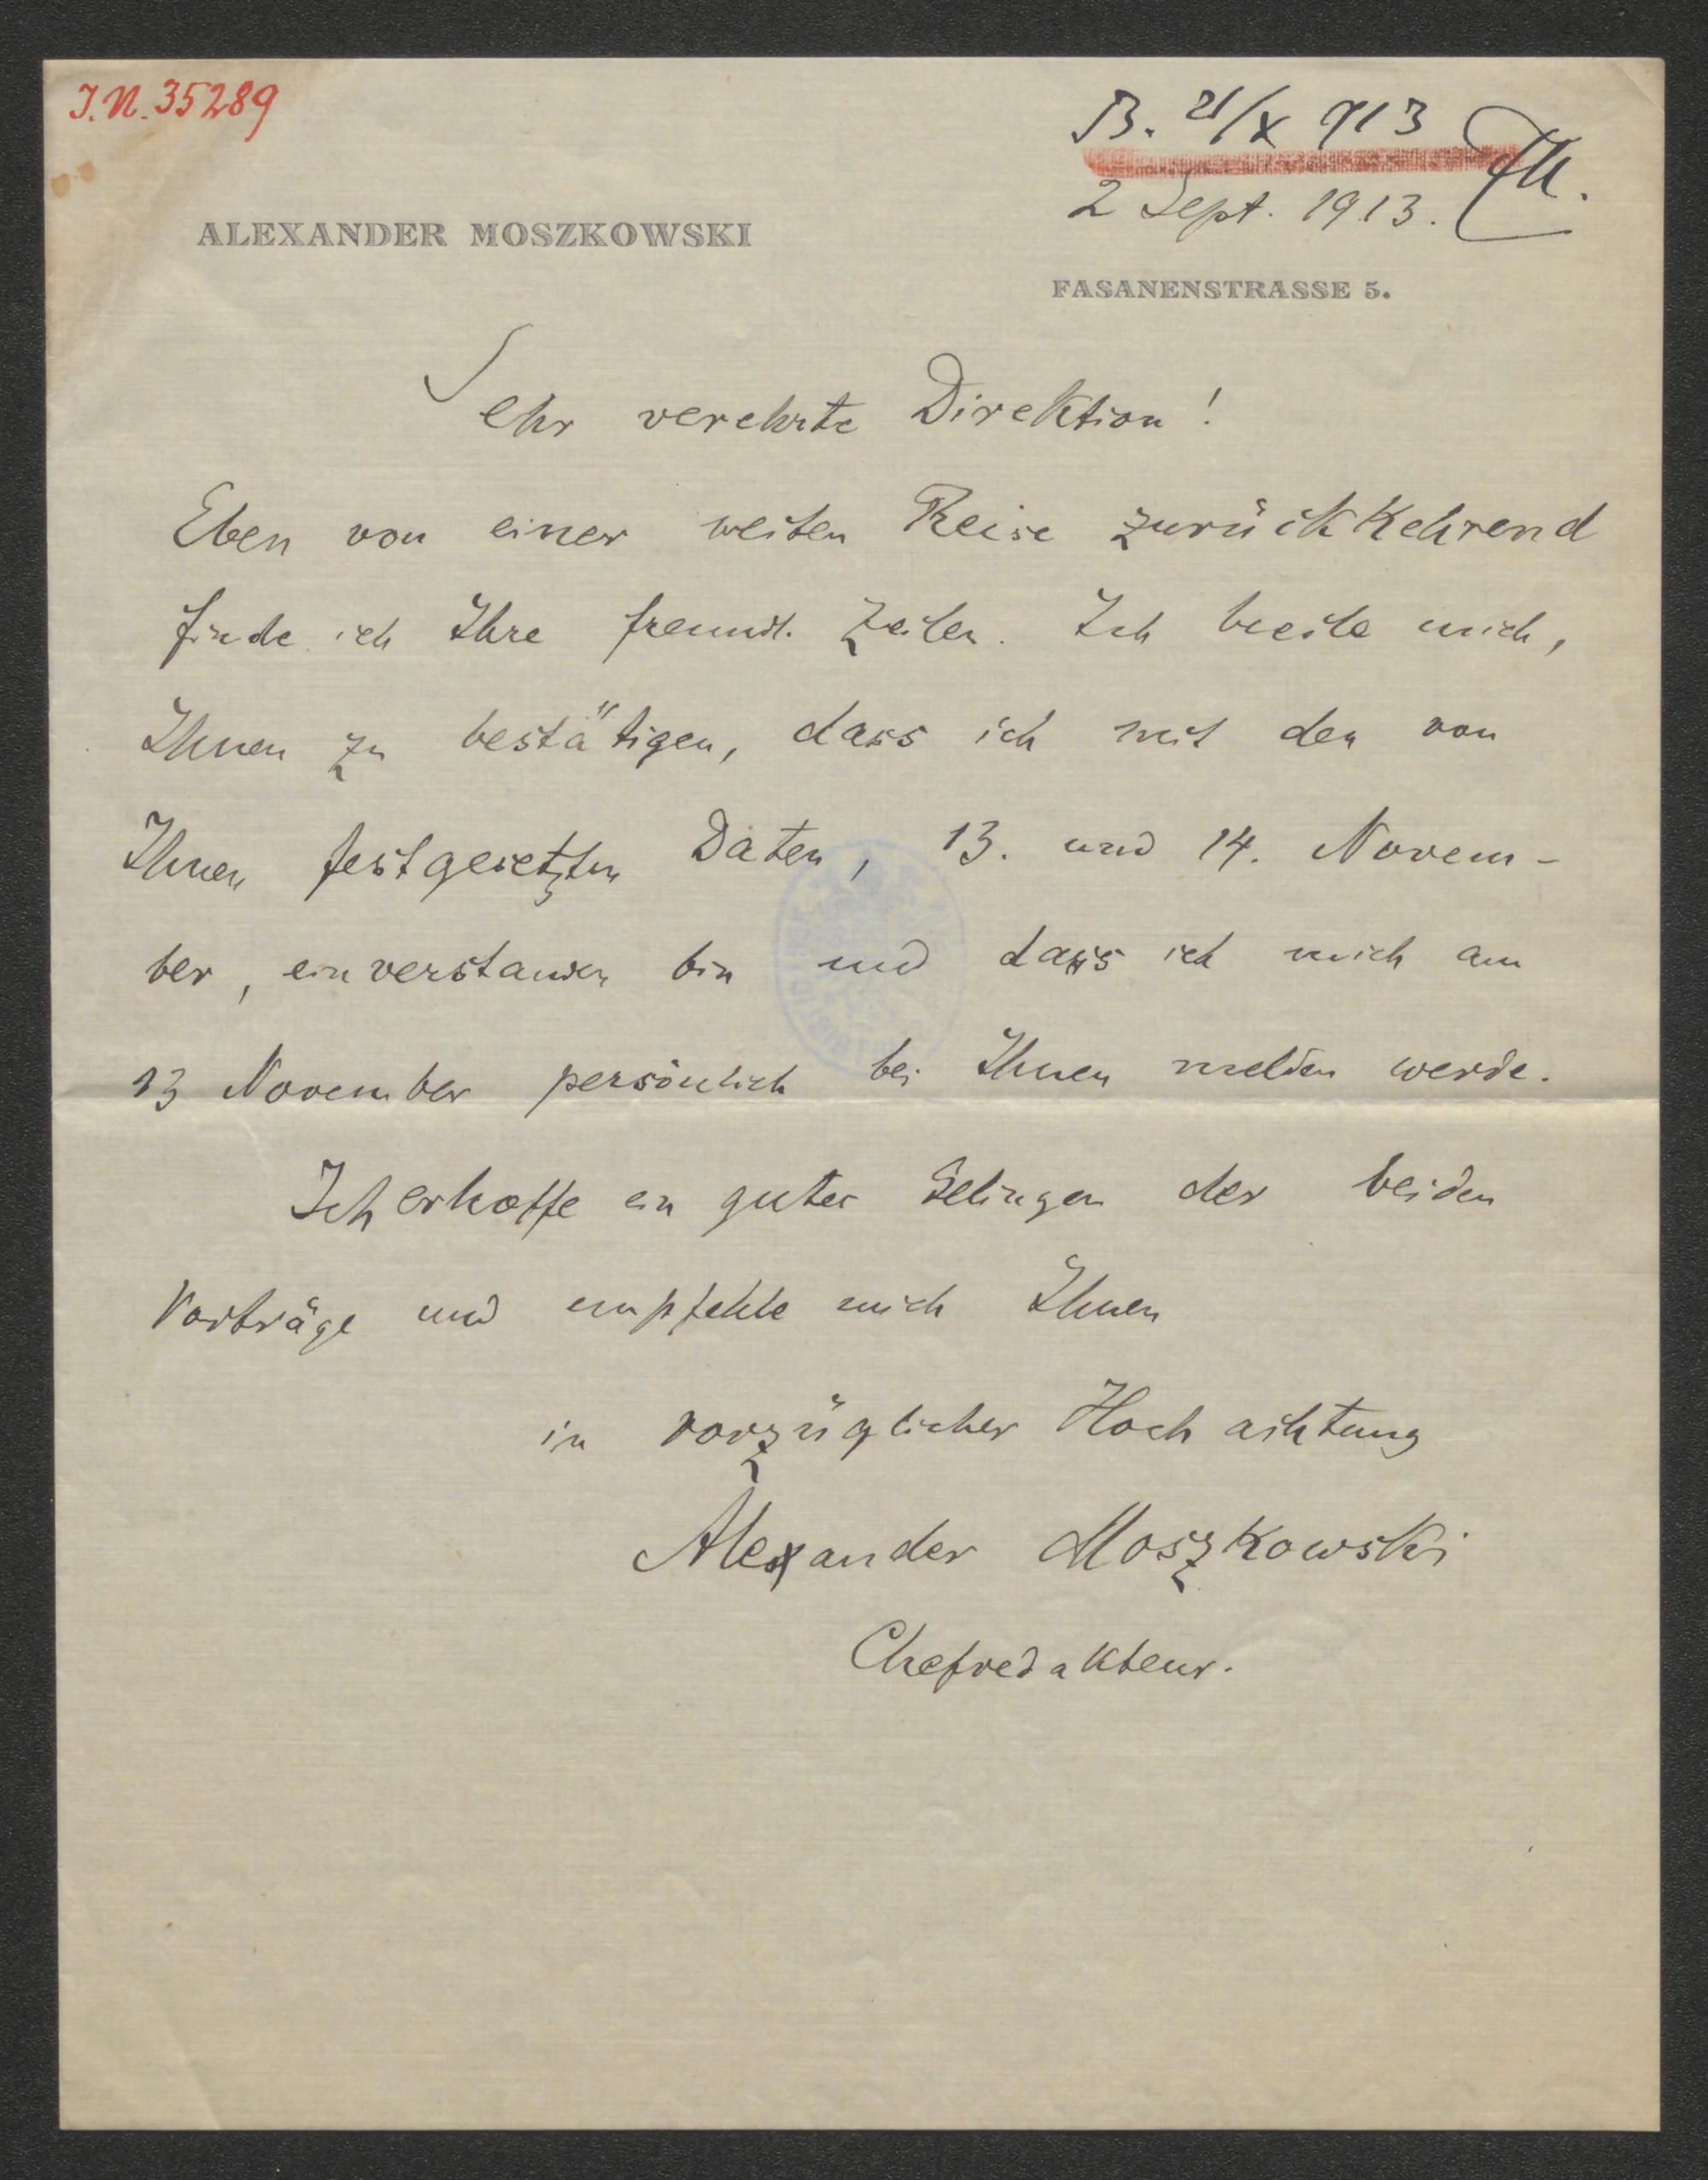 J.N. 35289
B. 21/X 913
2 Sept. 1913.
ALEXANDER MOSZKOWSKI
FASANENSTRASSE 5.
Sehr verehrte Direktion!
Eben von einer weiten Reise zurückkehrend
finde ich Ihre freundl. Zeilen. Ich beeile mich,
Ihnen zu bestätigen, dass ich mit den von
Ihnen festgesetzten Daten, 13. und 14. Novem-
ber, einverstanden bin und dass ich mich am
13 November persönlich bei Ihnen melden werde.
Ich erhoffe ein gutes Gelingen der beiden
Vorträge und empfehle mich Ihnen
in vorzüglicher Hochachtung
Alexander Moszkowski
Chefredakteur.